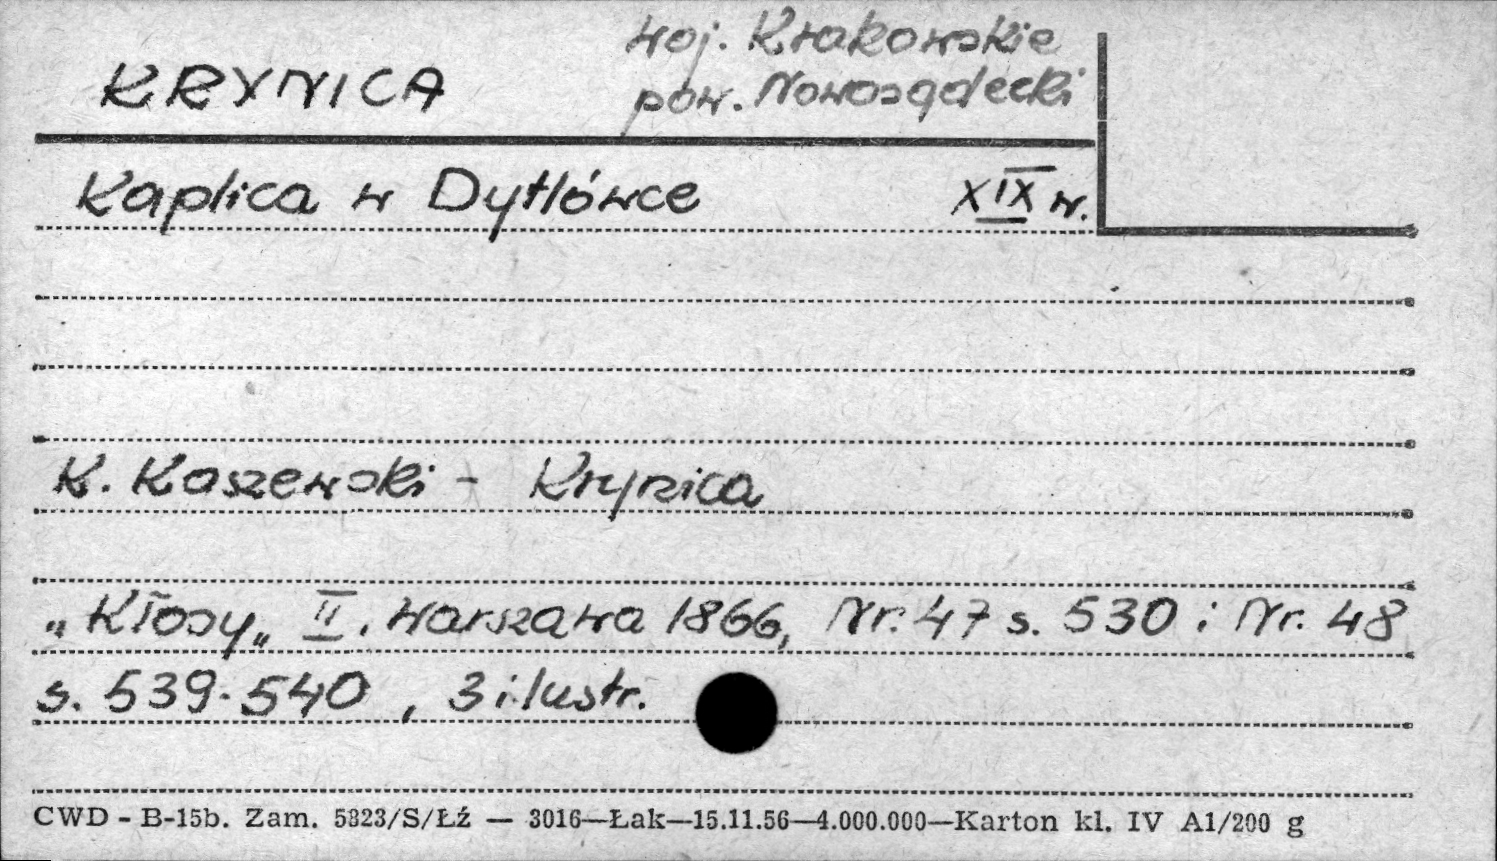 woj. Krakowskie
KRYNICA pow. Nowosądecki
Kaplica w Dytlówce XIX w.
K. Kaszewski - Krynica
„Kłosy„ II, Warszawa 1866, Nr. 47 s. 530 i Nr. 48
s. 539-540, 3 ilustr.
CWD - B-15b. Zam. 5323/S/Łź — 3016—Łak—15.11.56—4.000.000—Karton kl. IV A1/200 g